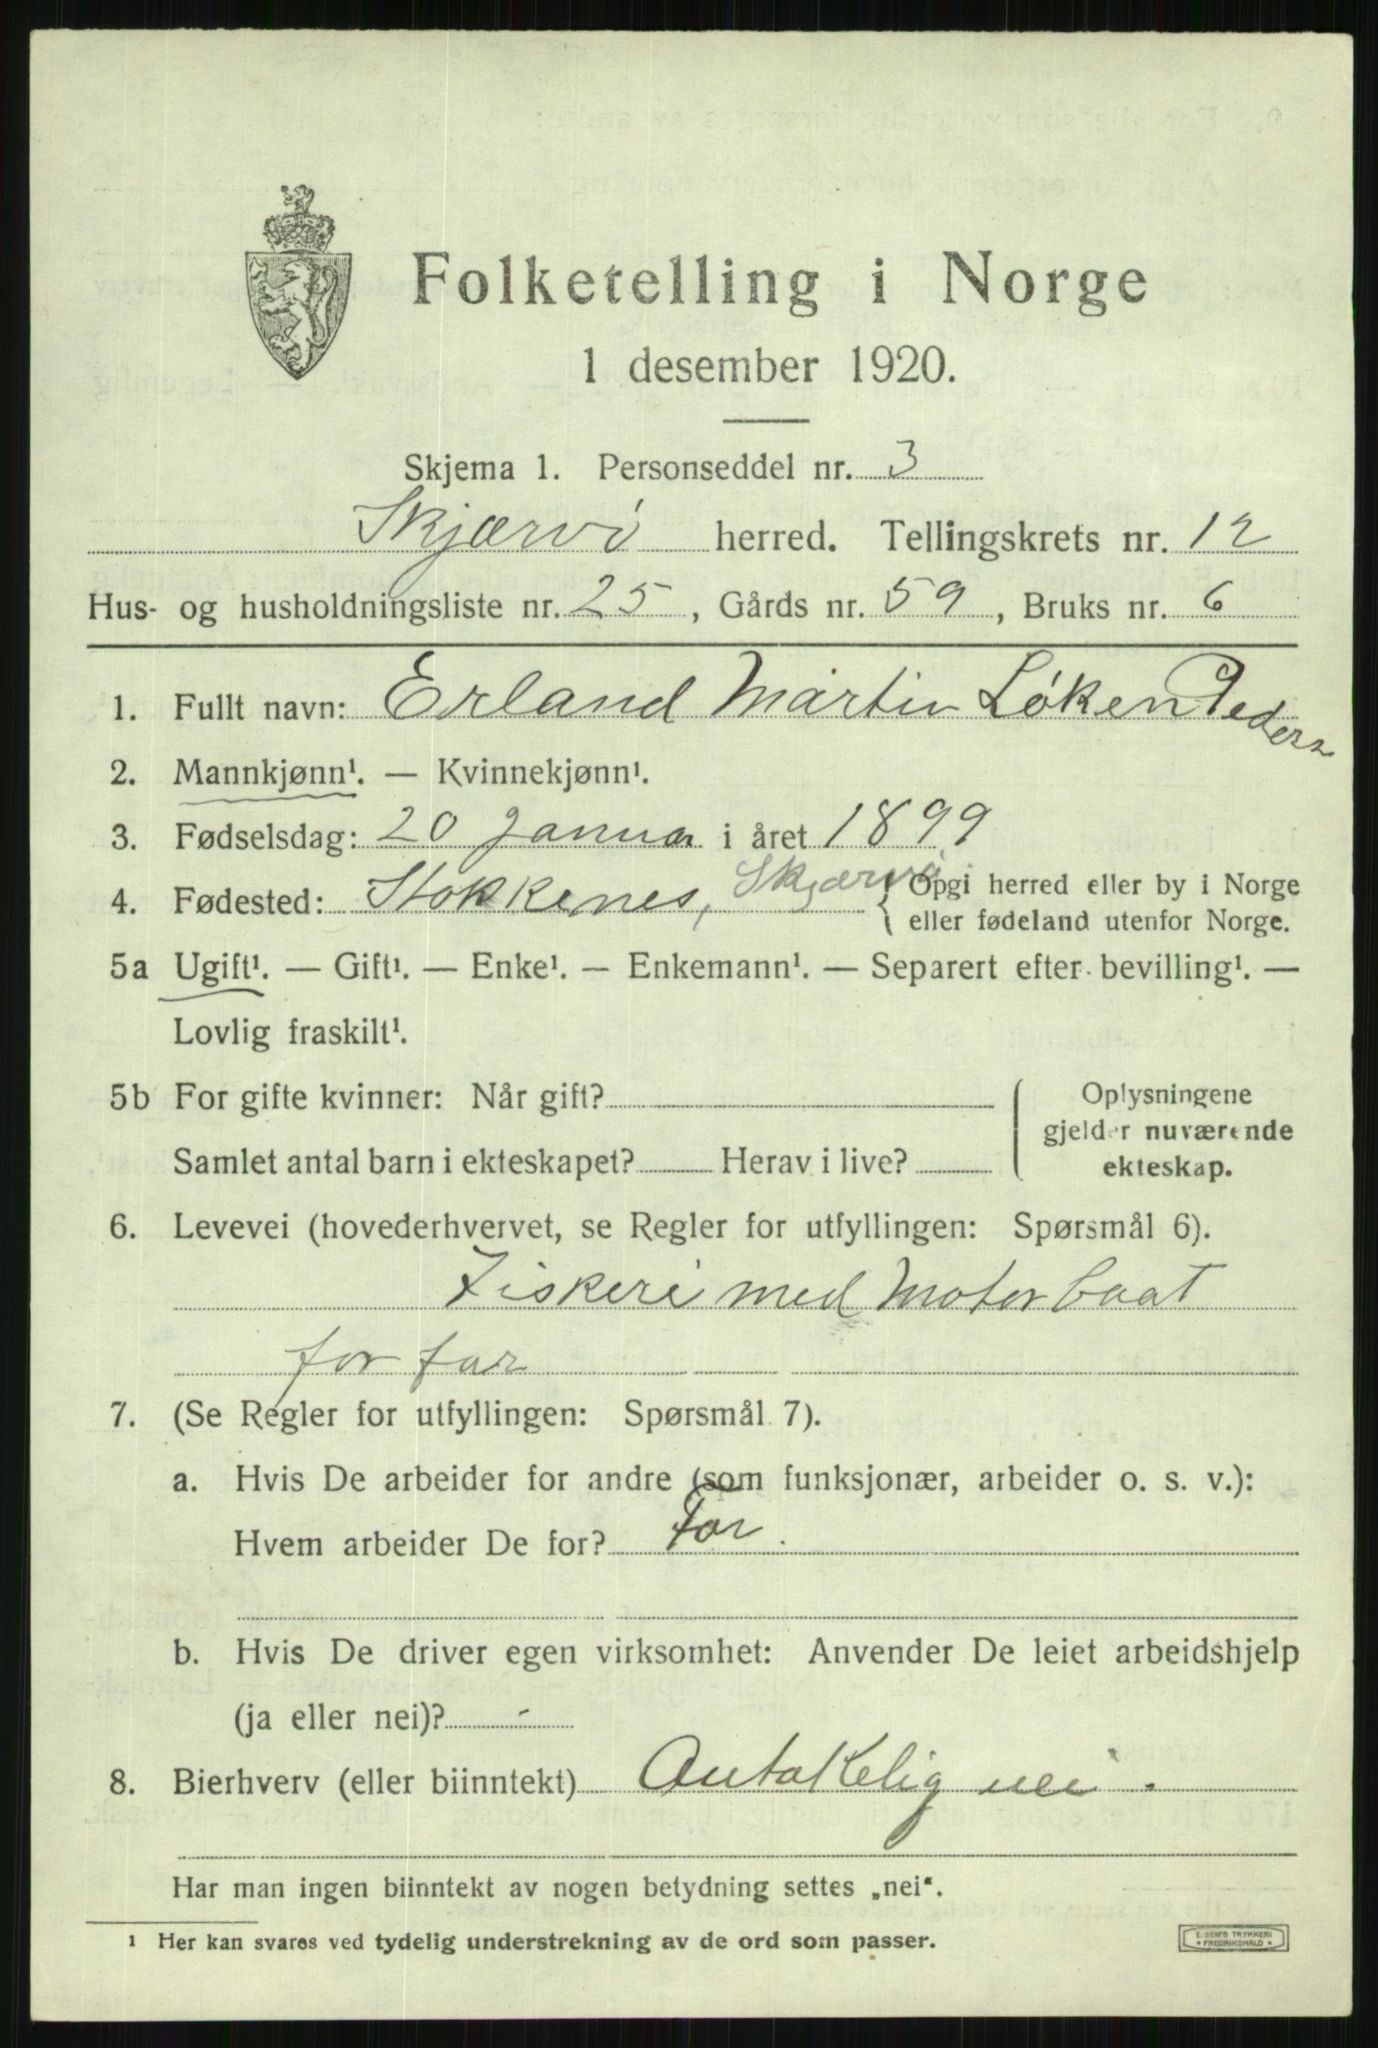 Folketelling i Norge
1 desember 1920.
Skjema 1. Personseddel nr. 3
Skjærvö herred. Tellingskrets nr. 12
Hus- og husholdningsliste nr. 25, Gårds nr. 59, Bruks nr. 6
1. Fullt navn: Erland Martin Løken Peders
2. Mannkjønn¹. — Kvinnekjønn¹.
3. Fødselsdag: 20 Januar i året 1899
4. Fødested: Stokkenes, Skjærvö { Opgi herred eller by i Norge
eller fødeland utenfor Norge.
5a Ugift¹. — Gift¹. — Enke¹. — Enkemann¹. — Separert efter bevilling¹. —
Lovlig fraskilt¹.
5b For gifte kvinner: Når gift?
Samlet antal barn i ekteskapet? Herav i live?
Oplysningene
gjelder nuværende
ekteskap.
6. Levevei (hovederhvervet, se Regler for utfyllingen: Spørsmål 6).
Fiskeri med Motorbaat
for far
7. (Se Regler for utfyllingen: Spørsmål 7).
a. Hvis De arbeider for andre (som funksjonær, arbeider o. s. v.):
Hvem arbeider De for? Far.
b. Hvis De driver egen virksomhet: Anvender De leiet arbeidshjelp
(ja eller nei)? -
8. Bierhverv (eller biinntekt) nei.
Har man ingen biinntekt av nogen betydning settes „nei“.
¹ Her kan svares ved tydelig understrekning av de ord som passer.
E. SEM'S TRYKKERI
* FREDRIKSHALD *